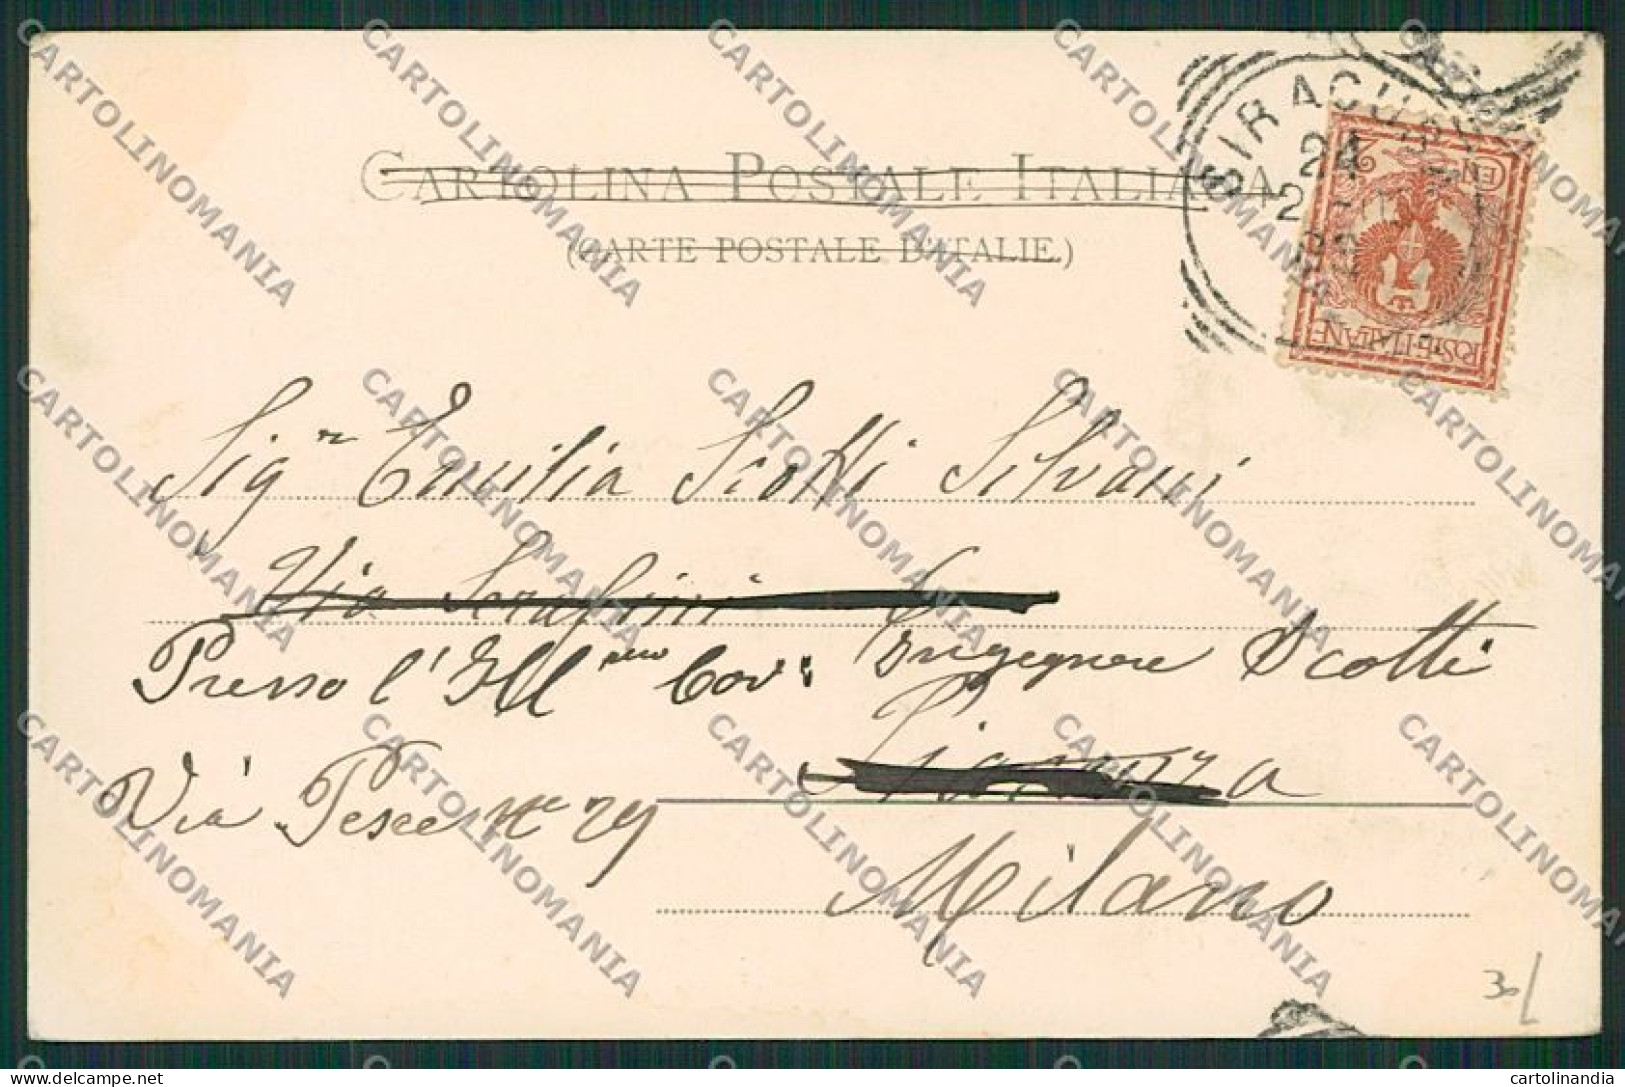 CARTOLINA POSTALE ITALIANA
(CARTE POSTALE D'ITALIE.)
SIRACUSA
24
2
CEN 2
POSTE ITALIANE
Sig.ra Emilia Scotti Silvani
Via Serafini 6
Presso l'Ill.mo Cav. Ingegnere Scotti
Piacenza
Via Pesce No 29
Milano
30
CARTOLINOMANIA
cartolinandia